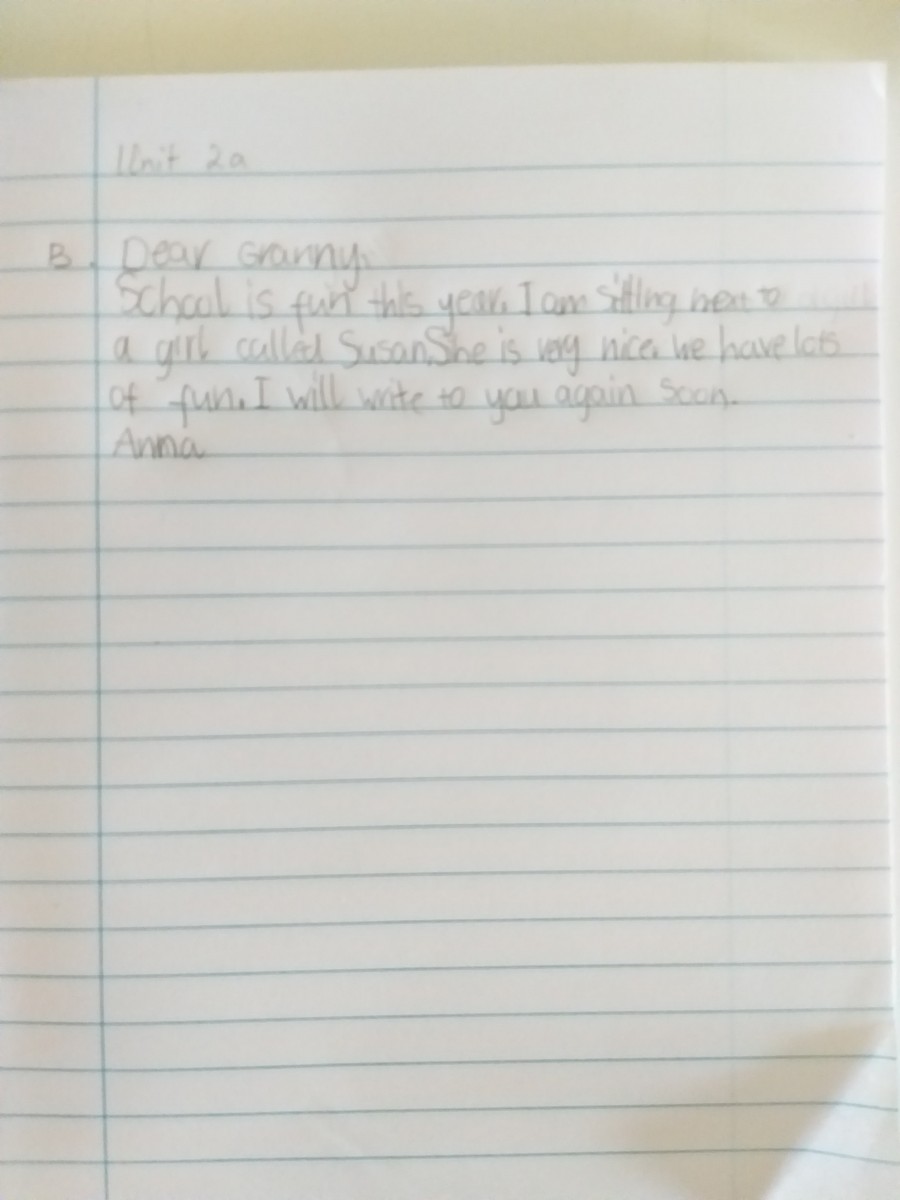 Unit 2a
B. Dear Granny,
School is fun this year. I am sitting next to
a girl called Susan. She is very nice. We have lots
of fun. I will write to you again soon.
Anna